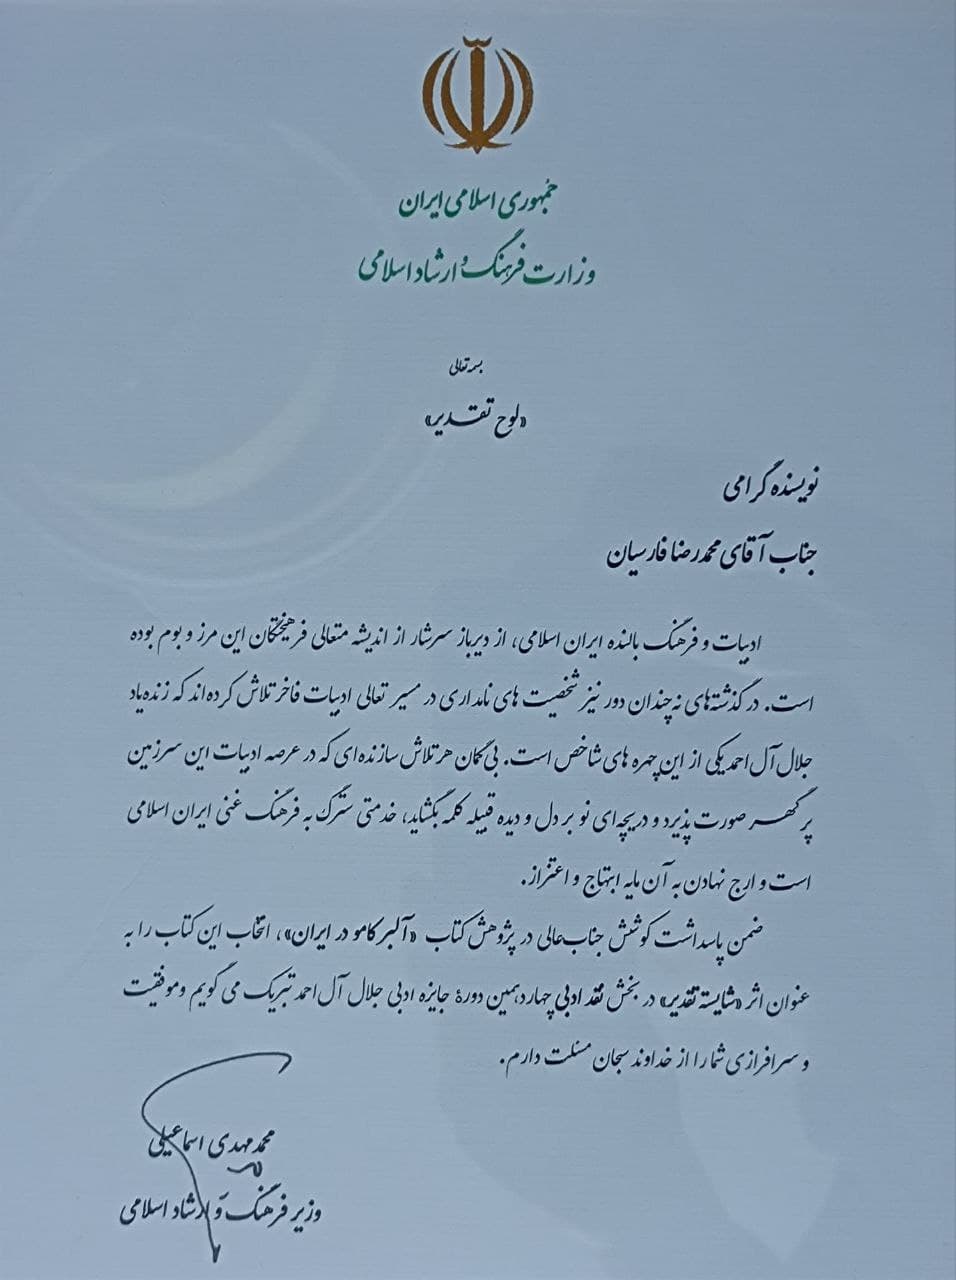 جمهوری اسلامی ایران
وزارت فرهنگ و ارشاد اسلامی
بسمه تعالی
«لوح تقدیر»
نویسنده گرامی
جناب آقای محمدرضا فارسیان
ادبیات و فرهنگ بالنده ایران اسلامی، از دیرباز سرشار از اندیشه متعالی فرهیختگان این مرز و بوم بوده
است. در گذشته‌های نه‌چندان دور نیز شخصیت های نامداری در مسیر تعالی ادبیات فاخر تلاش کرده‌اند که زنده‌یاد
جلال آل‌احمد یکی از این چهره های شاخص است. بی‌گمان هر تلاش سازنده‌ای که در عرصه ادبیات این سرزمین
پر گهر صورت پذیرد و دریچه‌ای نو بر دل و دیده قبیله کلمه بگشاید، خدمتی سترگ به فرهنگ غنی ایران اسلامی
است و ارج نهادن به آن مایه ابتهاج و اعتزاز.
ضمن پاسداشت کوشش جناب‌عالی در پژوهش کتاب «آلبر کامو در ایران»، انتخاب این کتاب را به
عنوان اثر «شایسته تقدیر» در بخش نقد ادبی چهاردهمین دورهٔ جایزه ادبی جلال آل‌احمد تبریک می گویم و موفقیت
و سرافرازی شما را از خداوند سبحان مسئلت دارم.
محمدمهدی اسماعیلی
وزیر فرهنگ و ارشاد اسلامی